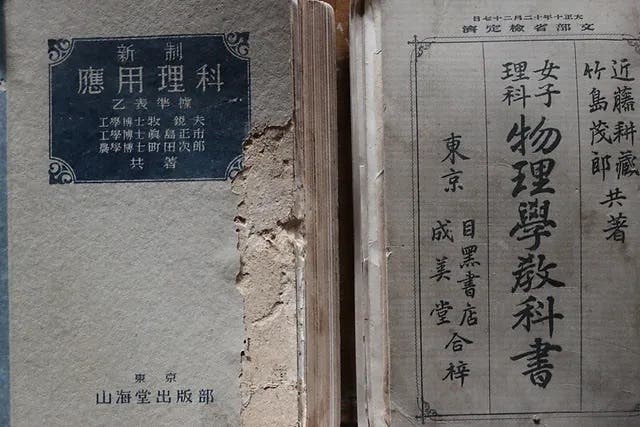 新制
應用理科
乙表準據
工學博士 牧 鋭夫
工學博士 眞島正市
農學博士 町田次郎
共著
東京
山海堂出版部
大正十年十二月二十七日
文部省檢定濟
近藤耕藏
竹島茂郎
共著
女子
理科
物理學教科書
東京
目黑書店
成美堂
合梓